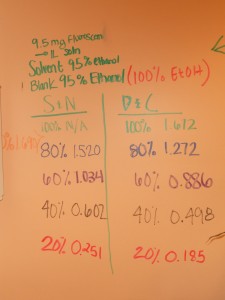 9.5 mg Fluorescein
→ 1L Soln
Solvent 95% ethanol
Blank 95% Ethanol (100% EtOH)
S&N D&C
100% N/A 100% 1.612
80% 1.520 80% 1.272
60% 1.034 60% 0.886
40% 0.602 40% 0.498
20% 0.251 20% 0.185